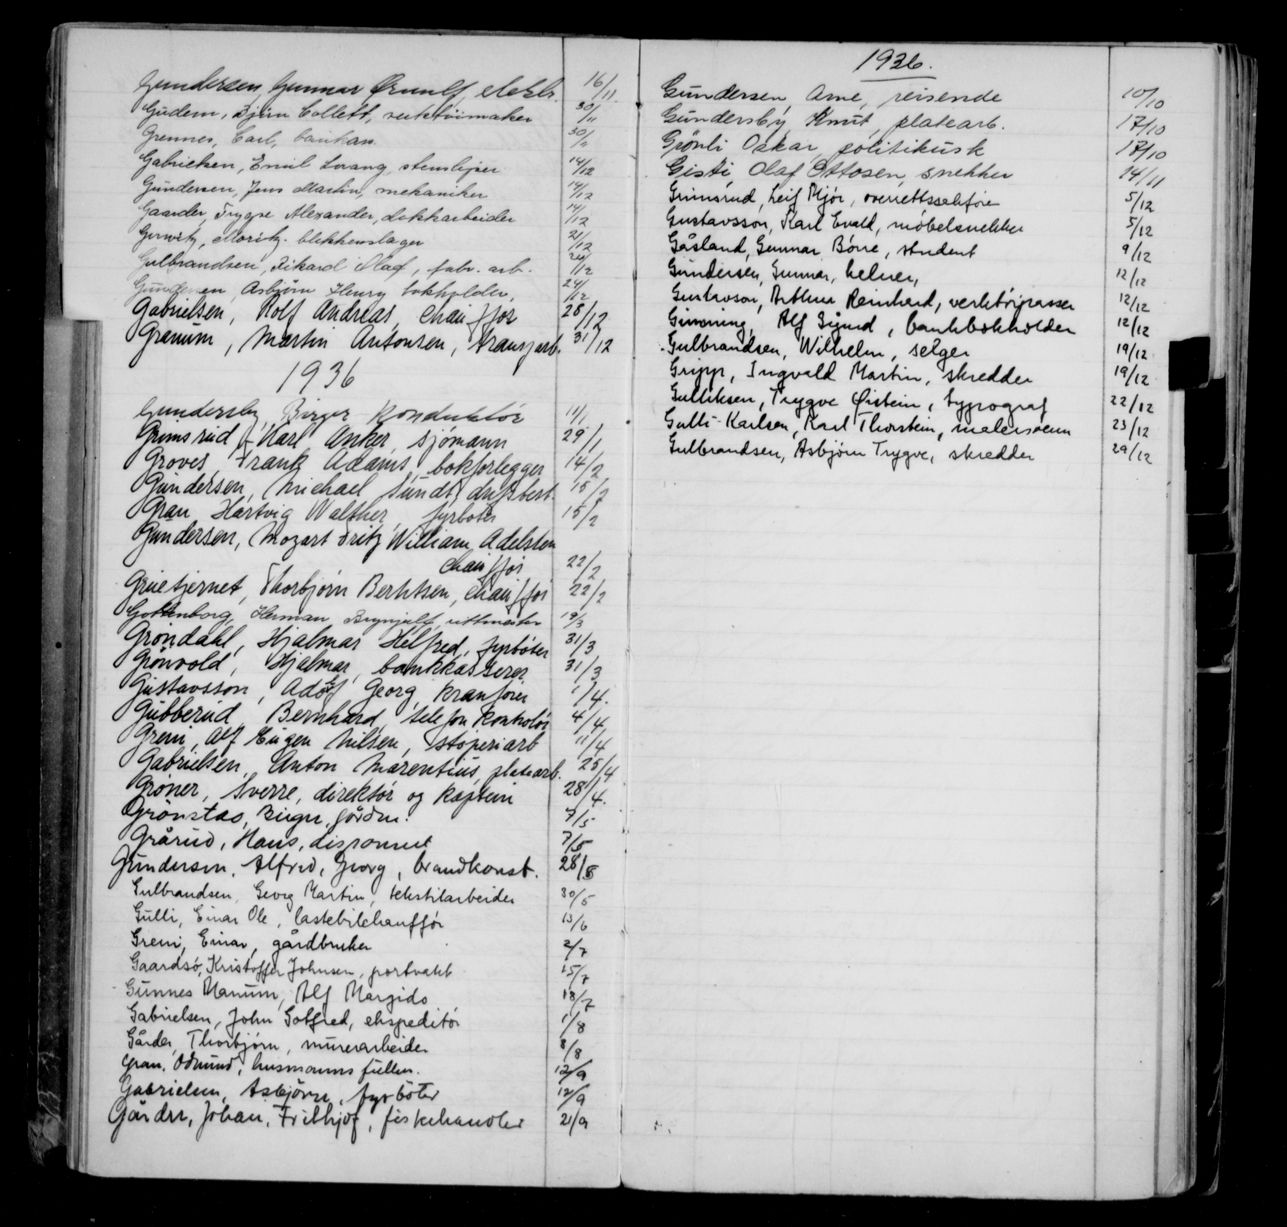 Gundersen, Gunnar Ørnulf, elektr. 16/11
Gudem, Bjørn Collett, verktøimaker 30/11
Grennes, Carl, 30/
Gabrielsen, Emil Lorang, 14/12
Gundersen, Jens Martin, mekaniker 14/12
Gaarder, Trygve Alexander, dekkarbeider 14/12
Moritz, blikkenslager 21/12
Gulbrandsen, Rikard Olaf, fabr. arb. /12
Gundersen, Asbjørn Henry, bokholder, 24/12
Gabrielsen, Rolf Andreas, chauffør 28/12
Granum, Martin Antonsen, transp.arb. 31/12
1936
Gundersby, Birger konduktør 11/1
Grimsrud, Karl Anker, sjømann 29/1
Groves, Frank Adams, bokforlegger 14/2
Gundersen, Michael Sundt, driftsbest. 15/2
Gran, Hartvig Walther, fyrbøter 15/2
Gundersen, Mozart Fritz William Adelsten
chauffør 22/2
Gruetjernet, Thorbjørn Berntsen, chauffør 22/2
Gothenborg, Herman Brynjulf, rittmester 19/3
Grøndahl, Hjalmar Helfred, fyrbøter 31/3
Grønvold, Hjalmar, bankkasserer 31/3
Gustavsson, Adolf Georg kranfører 1/4.
Gubberud, Bernhard, telefonkontrolør 4/4
Greni, Alf Eugen Nilsen, støperiarb 11/4
Gabrielsen, Anton Marentius, platearb. 25/4
Grøner, Sverre, direktør og kaptein 28/4.
Grønstad, Birger, gårdbr. 7/5
Grårud, Hans, disponent 7/5
Gundersen, Alfred, Georg, brandkonst. 28/5
Gulbrandsen, Georg Martin, tekstilarbeider 30/5
Gulli, Einar Ole, lastebilchauffør 13/6
Greni, Einar, gårdbruker 2/7
Gaardsø, Kristoffer Johnsen, portvakt 15/7
Gunnes Manum, Alf Margido 18/7
Gabrielsen, John Gotfred, ekspeditør 1/8
Gårder, Thorbjørn, murerarbeider 8/8
Gran, Odmund, husmanns fullm. 12/9
Gabrielsen, Asbjørn, fyrbøter 12/9
Gårder, Johan, Frithjof, fiskehandler 21/9
1936.
Gundersen, Arne, reisende 10/10
Gundersby, Knut, platearb. 17/10
Grønli Oskar politikusk 17/10
Gisti, Olaf Ottosen, snekker 14/11
Grimsrud, Leif Mjør, overrettssakfører 5/12
Gustavsson, Karl Evald, møbelsnekker 5/12
Gåsland, Gunnar Børre, student 9/12
Gundersen, Gunnar, kelner, 12/12
Gustavson, Arthur Reinhard, verktøipasser 12/12
Alf Sigurd, bankbokholder 12/12
Gulbrandsen, Wilhelm, selger 19/12
Gripp, Ingvald Martin, skredder 19/12
Gulliksen, Trygve Øistein, typograf 22/12
Gulli-Karlsen, Karl Thorstein, malersvenn 23/12
Gulbrandsen, Asbjørn Trygve, skredder 29/12